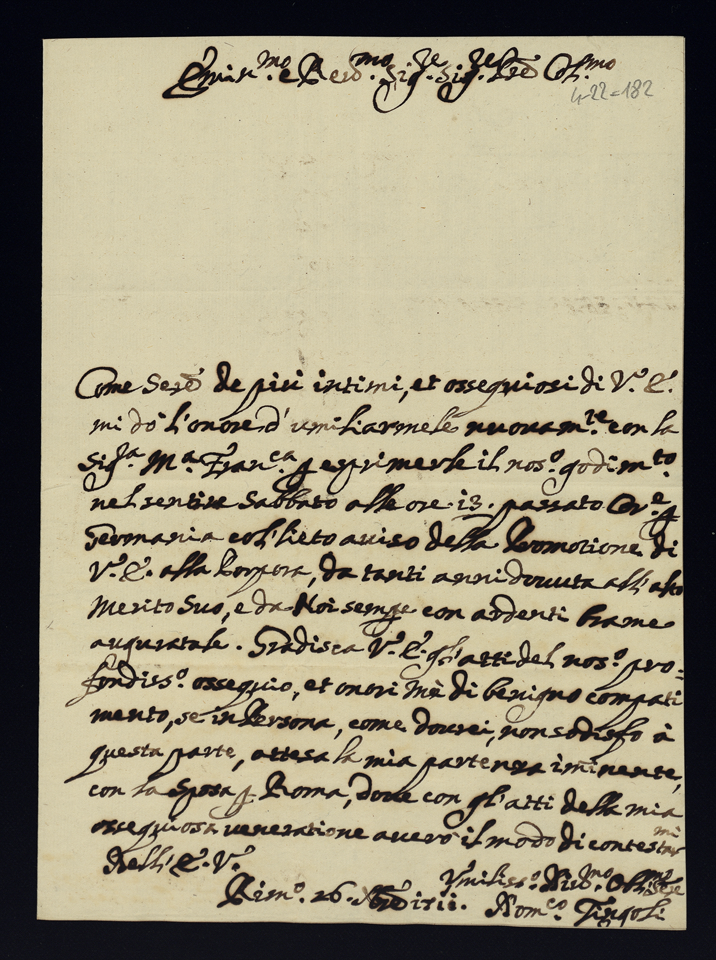 Emin.mo e Rev.mo Sig.re Sig.re P̃rõn Col.mo
4-22=182
Come Serẽ de più intimi, et ossequiosi di V.ª E.
mi dò l'onore d'umiliarmele nuovam.te con la
Sig.ra M.a Fran.ca p esprimerle il nos.o godim.to
nel sentire Sabbato alle ore 13. passato Cor.e p
Germania col lieto aviso della Promotione di
V.ª E. alla Porpora, da tanti anni dovuta all'alto
Merito Suo, e da Noi sempre con ardenti brame
auguratale. Gradisca V.ª E. gl'atti del nos.o pro=
fondiss.o ossequio, et onori mè di benigno compati
mento, se in Persona, come dovrei, non sodisfo à
questa parte, attesa la mia partenza iminente,
con la Sposa p Roma, dove con gl'atti della mia
ossequiosa veneratione averò il modo di contestarmi
Dell'E. V.ª
Umiliss.o Div.mo Obl.mo Serẽ
Rim.o 26. Xbrẽ 1711. Dom.co Tingoli